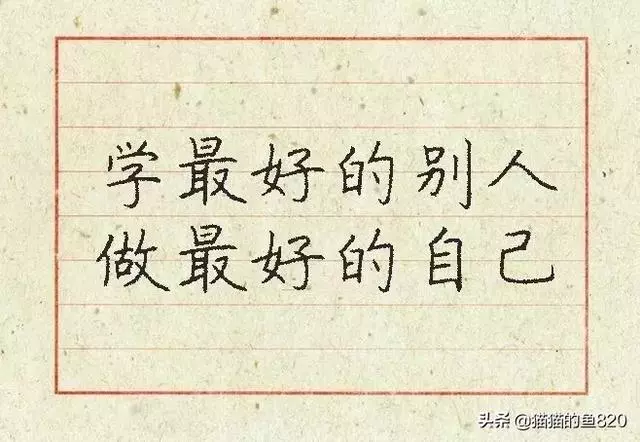 学最好的别人
做最好的自己
头条 @猫猫的鱼820